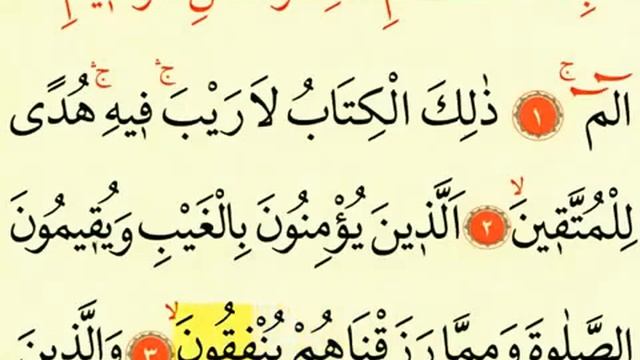 الٓمٓ ۚ ﴿١﴾ ذٰلِكَ الْكِتَابُ لَا رَيْبَ ۚۛ ف۪يهِ ۚۛ هُدًى
لِلْمُتَّق۪ينَ ۙ ﴿٢﴾ اَلَّذ۪ينَ يُؤْمِنُونَ بِالْغَيْبِ وَيُق۪يمُونَ
الصَّلٰوةَ وَمِمَّا رَزَقْنَاهُمْ يُنْفِقُونَ ۙ ﴿٣﴾ وَالَّذ۪ينَ